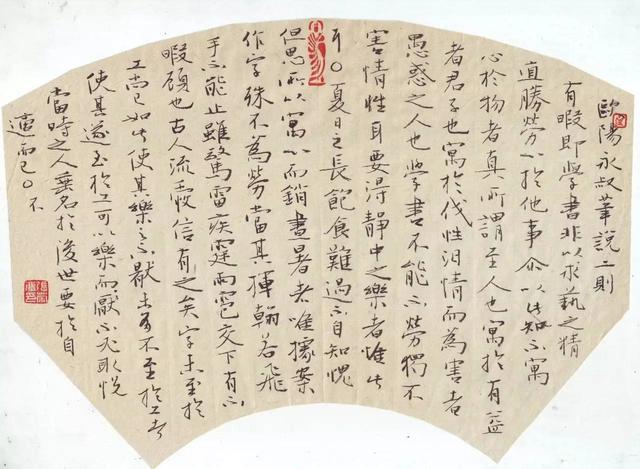 歐陽永叔筆說二則
有暇即學書非以求藝之精
直勝勞心於他事尒以此知不寓
心於物者真所謂至人也寓於有益
者君子也寓於伐性汩情而為害者
愚惑之人也學書不能不勞獨不
害情性耳要得靜中之樂者惟此
耳〇夏日之長飽食難過不自知愧
但思所以寓心而銷晝暑者唯據案
作字殊不為勞當其揮翰若飛
手不能止雖驚雷疾霆雨雹交下有不
暇顧也古人流愛信有之矣字未至於
工尚已如此使其樂之不厭未有不至於工者
使其遂至於工可以樂而厭不必取悅
當時之人垂名於後世要於自
適而已〇不